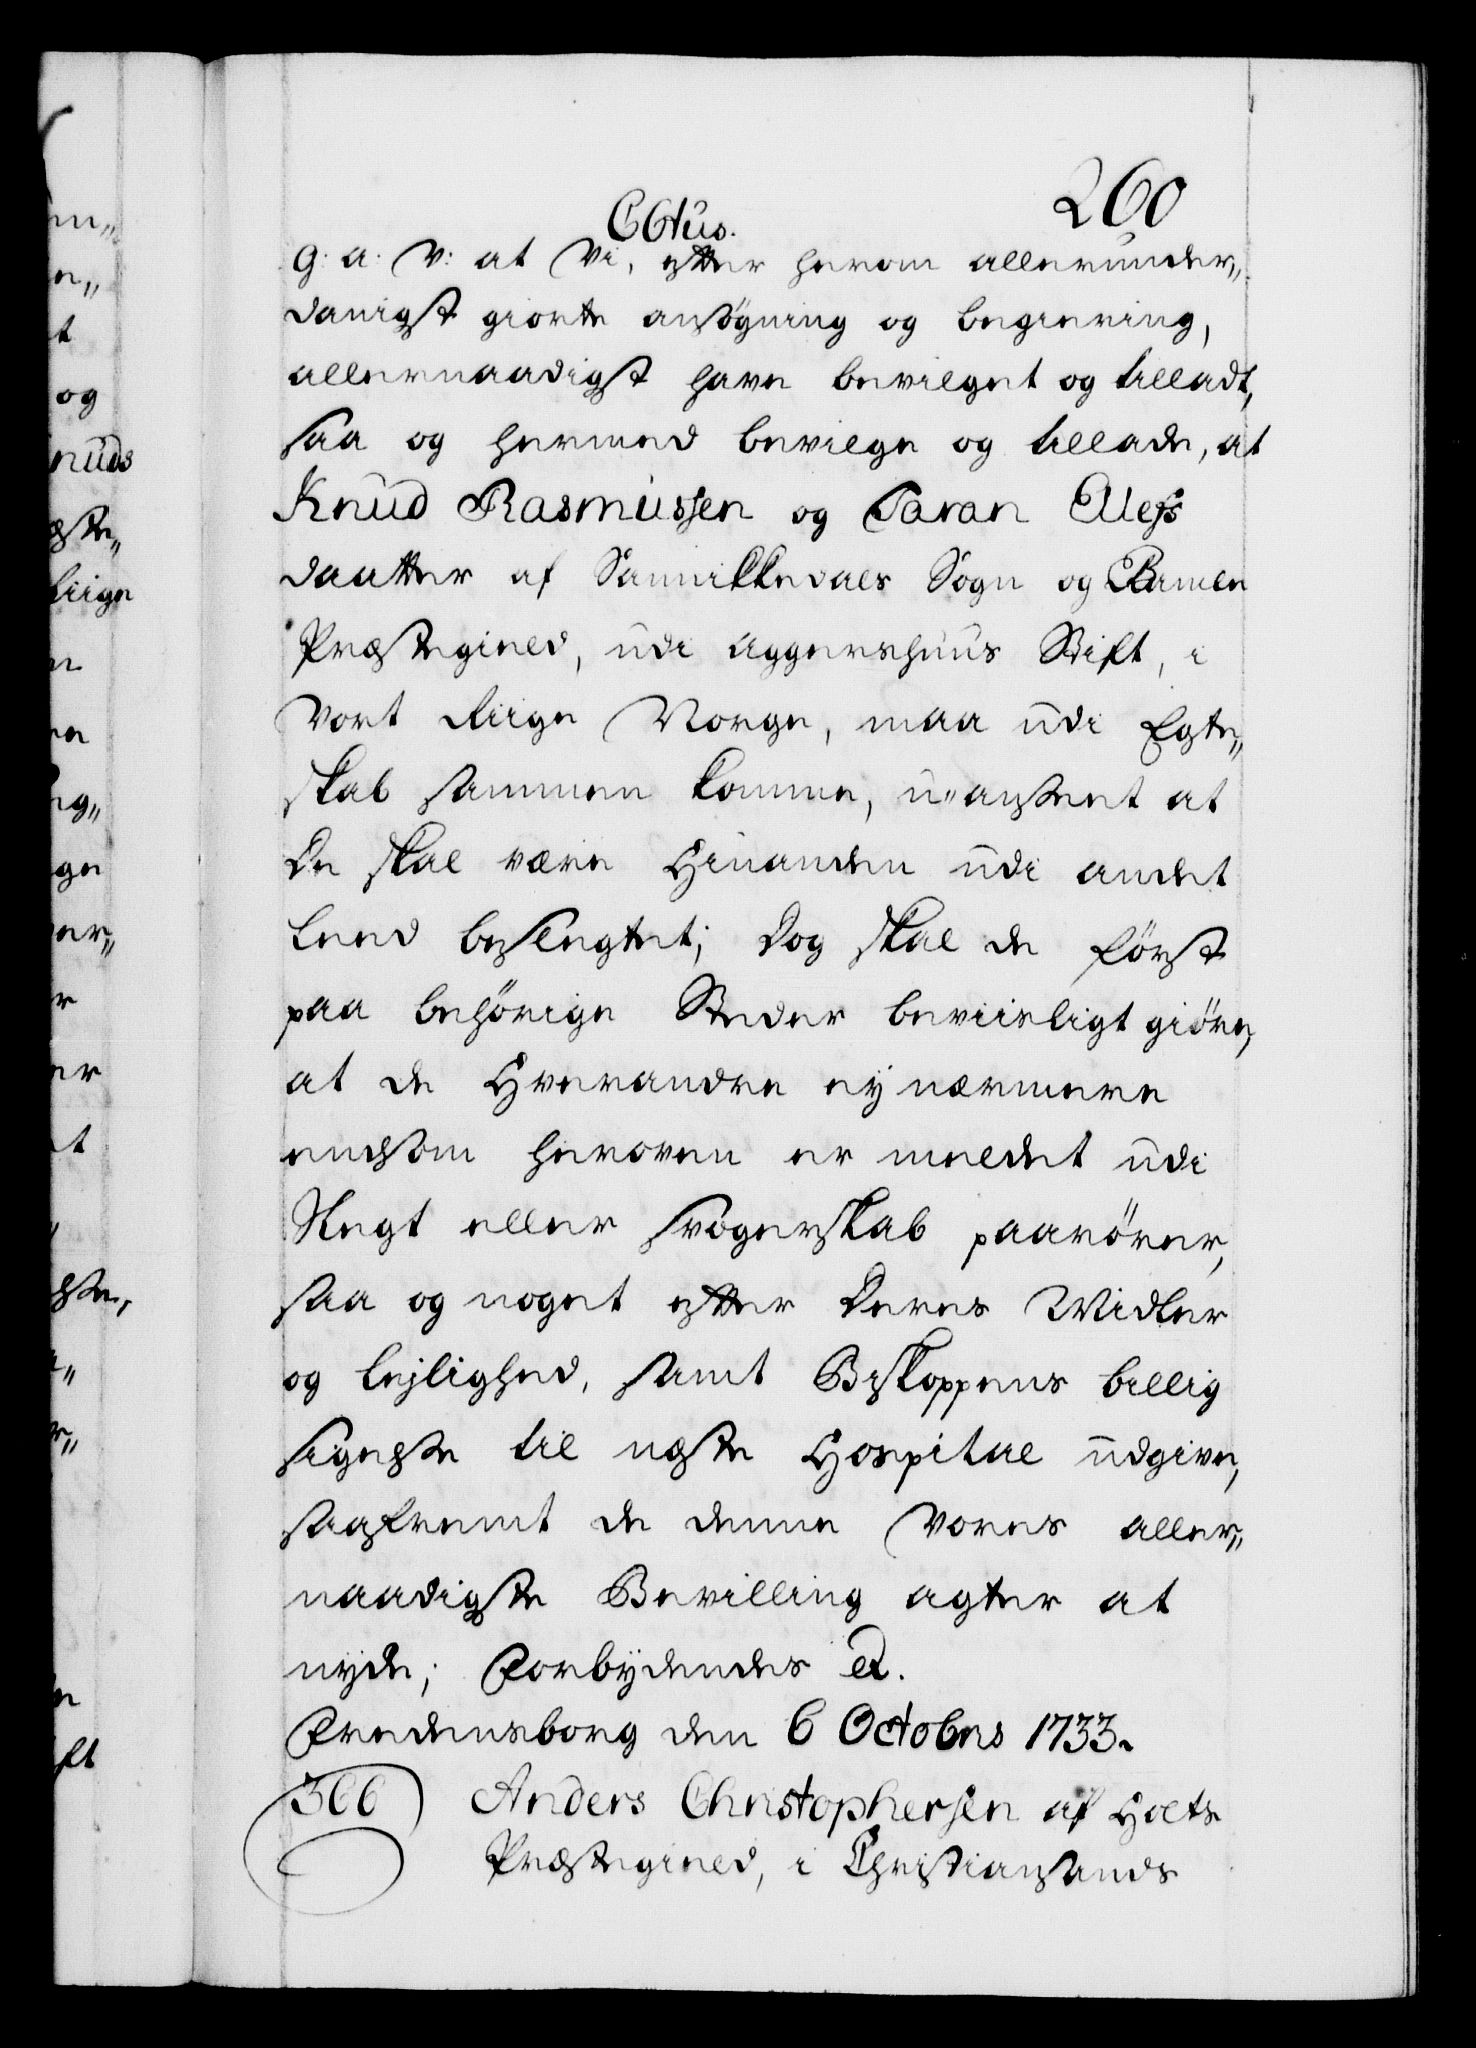 260
C6tus.
G: a: V: at Vi, efter herom allerunder„
danigst giorte ansøgning og begiering,
allernaadigst have bevilget og tilladt,
saa og hermed bevilge og tillade, at
Knud Rasmussen og Taran Olles
daatter af Sannikkedals Sogn og Bamle
Præstegield, udi Aggershuus Stift, i
Vort Riige Norge, maa udi Egte„
skab sammen komme, u„anseet at
De skal være Hinanden udi andet
Leed beslegtet; Dog skal de først
paa behörige Steder beviisligt giöre,
at de Hverandre ey nærmere
endsom heroven er meldet udi
Slegt eller Svogerskab paarörer,
saa og noget efter Deres Midler
og lejlighed, samt Biskoppens billig
sigelse til neste Hospital udgive,
saafremt de denne Vores aller„
naadigste Bevilling agter at
nyde; Forbydendes &.
Fredensborg den 6 Octobris 1733.
366 Anders Christophersen af Holts
Præstegield, i Christiansands